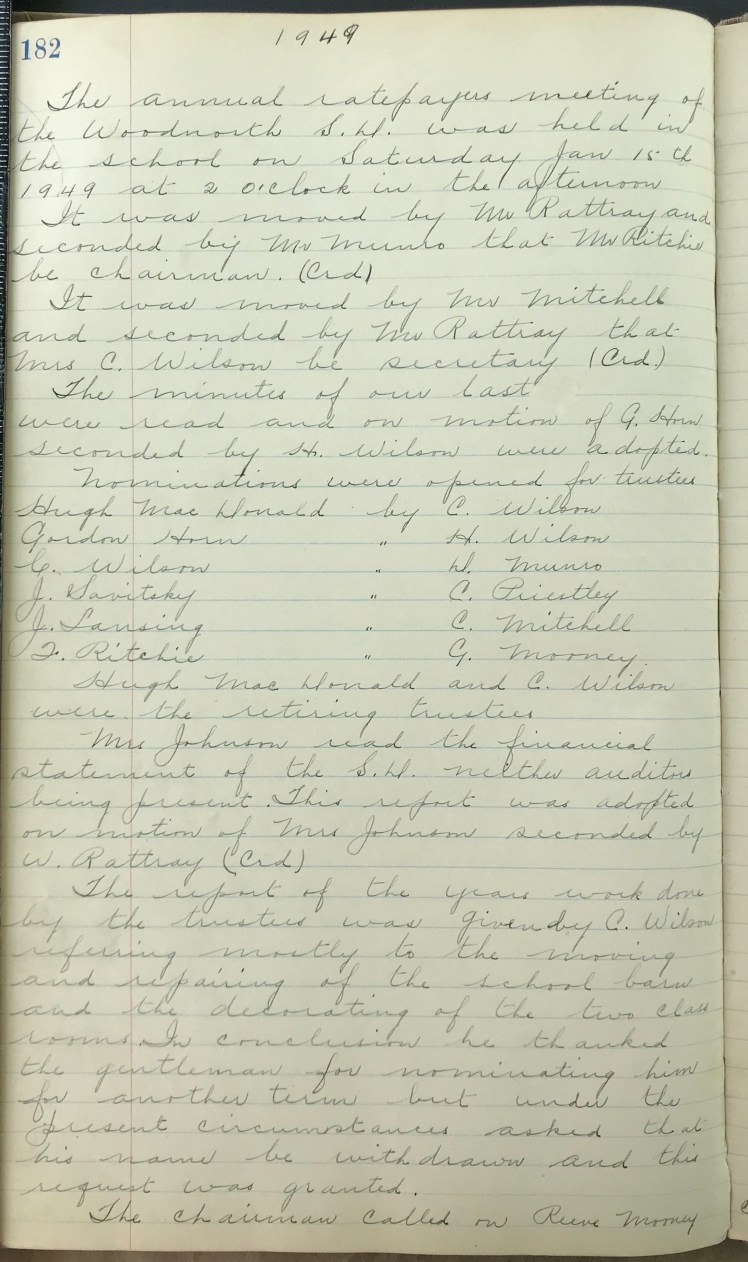 182
1949
The annual ratepayers meeting of
the Woodnorth S.D. was held in
the school on Saturday Jan 15th
1949 at 2 o'clock in the afternoon
It was moved by Mr Rattray and
seconded by Mr Munro that Mr Ritchie
be chairman. (Crd)
It was moved by Mr Mitchell
and seconded by Mr Rattray that
Mrs C. Wilson be secretary (Crd.)
The minutes of our last
were read and on motion of G. Horn
seconded by H. Wilson were adopted.
Nominations were opened for trustees
Hugh Mac Donald by C. Wilson
Gordon Horn " H. Wilson
C. Wilson " D. Munro
J. Savitsky " C. Priestley
J. Lansing " C. Mitchell
F. Ritchie " G. Mooney.
Hugh Mac Donald and C. Wilson
were the retiring trustees
Mrs Johnson read the financial
statement of the S.D. neither auditors
being present. This report was adopted
on motion of Mrs Johnson seconded by
W. Rattray (Crd)
The report of the years work done
by the trustees was given by C. Wilson
referring mostly to the moving
and repairing of the school barn
and the decorating of the two class
rooms. In conclusion he thanked
the gentleman for nominating him
for another term but under the
present circumstances asked that
his name be withdrawn and this
request was granted.
The chairman called on Reeve Mooney